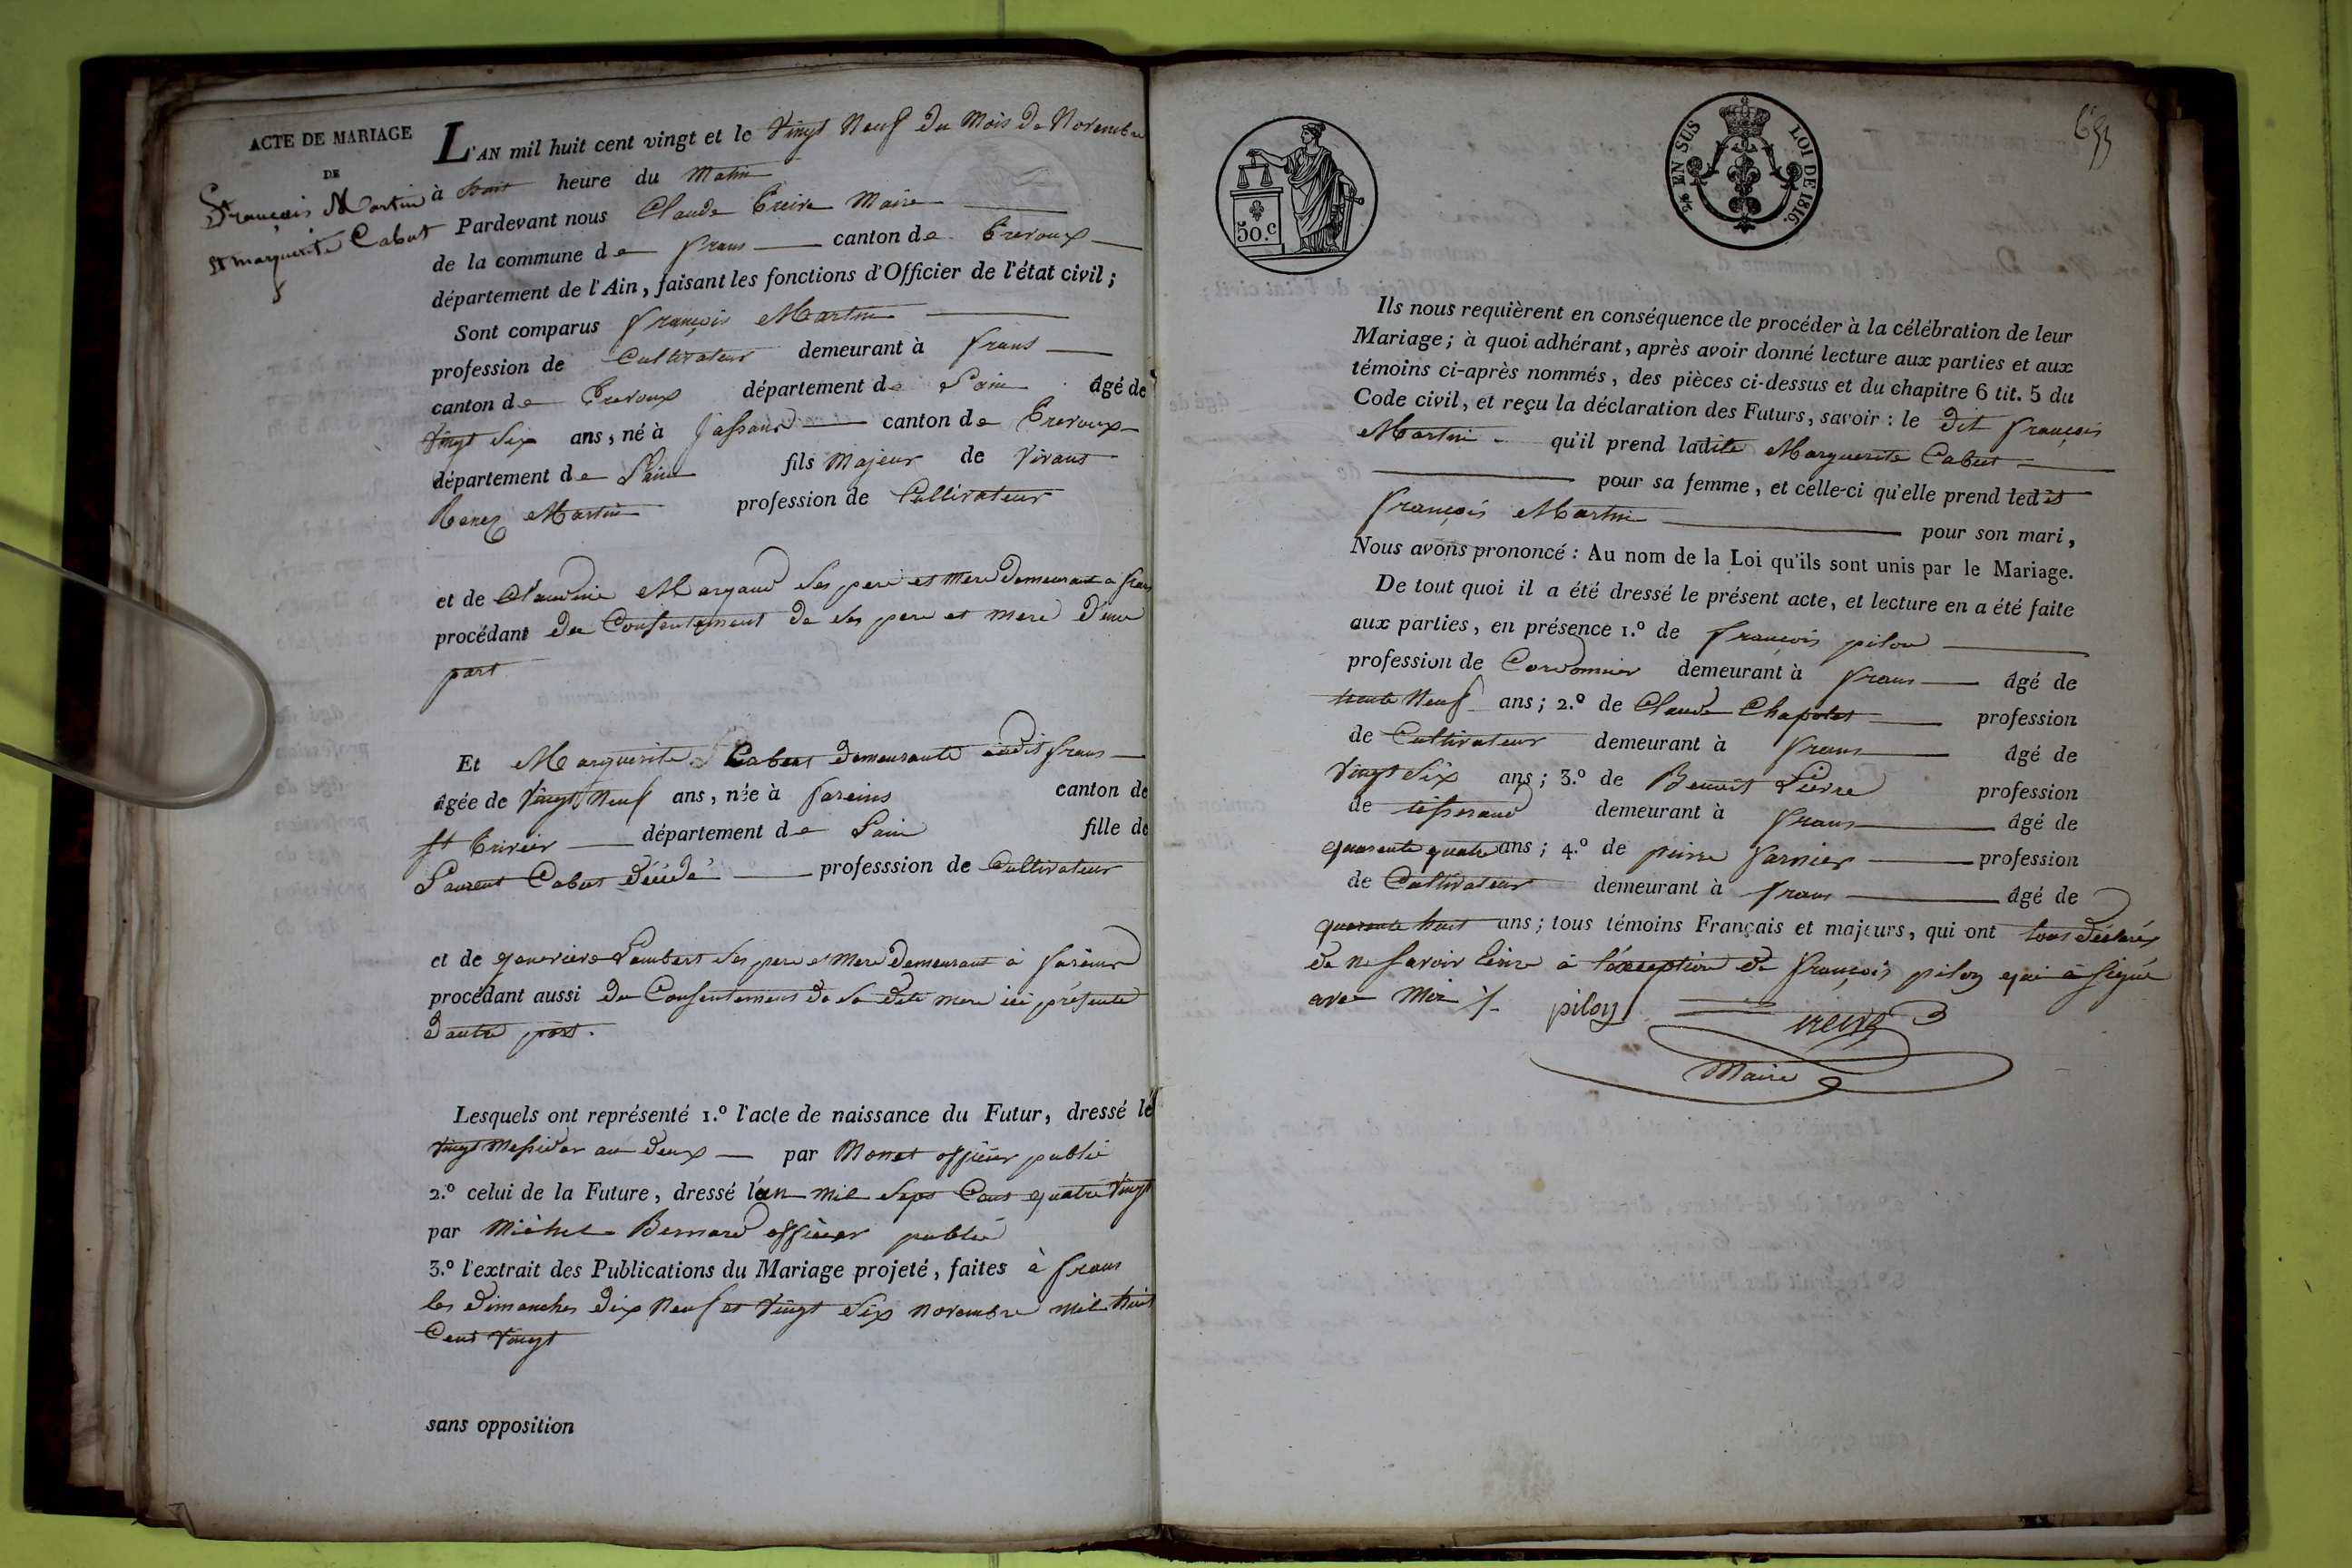 ACTE DE MARIAGE
DE
François Martin
et marguerite Cabut
L'AN mil huit cent vingt et le Vingt Neuf du Mois de Novembre
à huit heure du Matin
Pardevant nous Claude Treive Maire
de la commune de frans canton de Trevoux
département de l'Ain, faisant les fonctions d'Officier de l'état civil;
Sont comparus françois Martin
profession de Cultivateur demeurant à frans
canton de Trevoux département de Lain âgé de
Vingt Six ans, né à Jassans canton de Trevoux
département de Lain fils Majeur de Vivant
Martin profession de Cultivateur
et de Claudine Margand ses pere et mere demeurant a frans
procédant du Consentement de ses pere et mere d'une
part
Et Marguerite Cabut demeurante audit frans
âgée de Vingt Neuf ans, née à fareins canton de
St Trivier département de Lain fille de
Laurent Cabut décédé professsion de Cultivateur
et de genevieve Lambert ses pere et mere demeurant à fareins
procédant aussi du Consentement de sa dite mere ici présente
d'autre part.
Lesquels ont représenté 1.º l'acte de naissance du Futur, dressé le
Vingt Messidor an deux par Monet officier public
2.º celui de la Future, dressé l'an mil sept Cent quatre Vingt
par Michel Bernard officier public
3.º l'extrait des Publications du Mariage projeté, faites à frans
les dimanches dix Neuf et Vingt Six novembre mil huit
Cent Vingt
sans opposition
50.c
EN SUS
LOI DE 1816.
Ils nous requièrent en conséquence de procéder à la célébration de leur
Mariage; à quoi adhérant, après avoir donné lecture aux parties et aux
témoins ci-après nommés, des pièces ci-dessus et du chapitre 6 tit. 5 du
Code civil, et reçu la déclaration des Futurs, savoir: le dit françois
Martin qu'il prend ladite Marguerite Cabut
pour sa femme, et celle-ci qu'elle prend ledit
françois Martin pour son mari,
Nous avons prononcé: Au nom de la Loi qu'ils sont unis par le Mariage.
De tout quoi il a été dressé le présent acte, et lecture en a été faite
aux parties, en présence 1.º de françois pilon
profession de Cordonnier demeurant à frans âgé de
trente Neuf ans; 2.º de Claude Chapolet profession
de Cultivateur demeurant à frans âgé de
Vingt Six ans; 3.º de Benoit Pierre profession
de tisserand demeurant à frans âgé de
quarente quatre ans; 4.º de pierre profession
de Cultivateur demeurant à frans âgé de
quarente huit ans; tous témoins Français et majeurs, qui ont tous déclarés
de ne savoir Ecrire à l'exception de françois pilon qui à signé
avec Moi
pilon treive
Maire